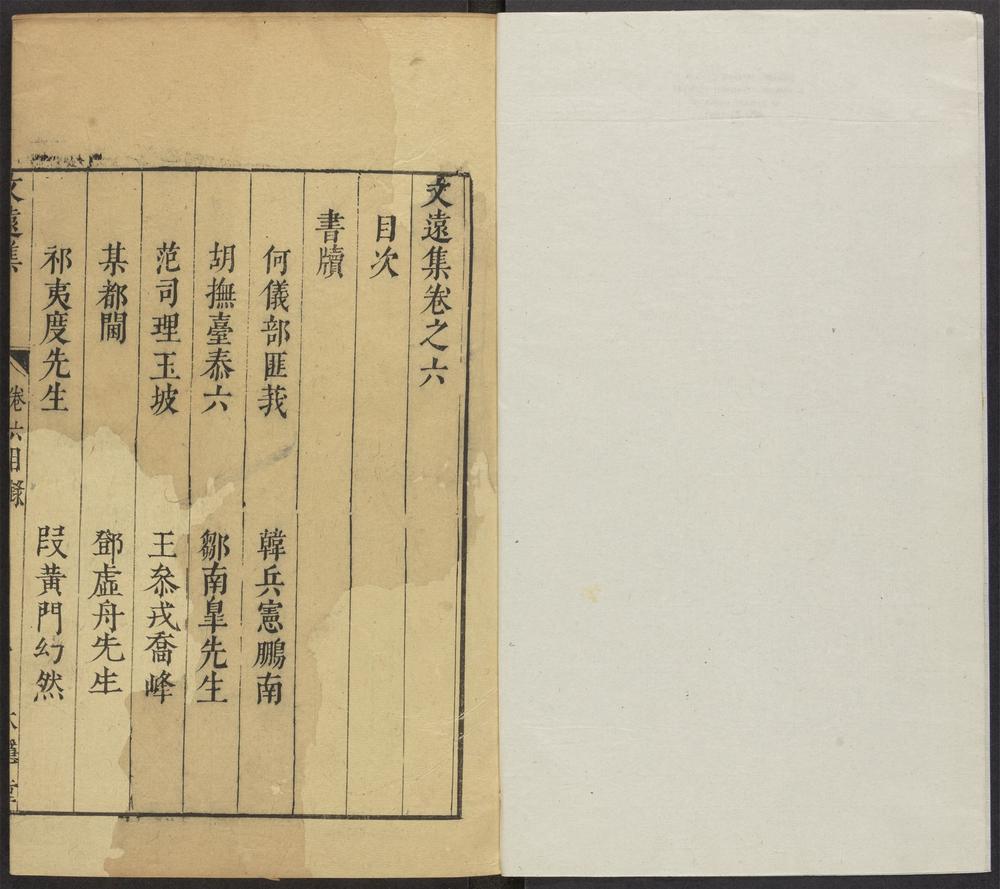 文遠集卷之六
目次
書牘
何儀部匪莪　韓兵憲鵬南
胡撫臺泰六　鄒南臯先生
范司理玉坡　王叅戎喬峰
某都閫　鄧虛舟先生
祁夷度先生　段黃門幻然
文遠集　卷六目錄